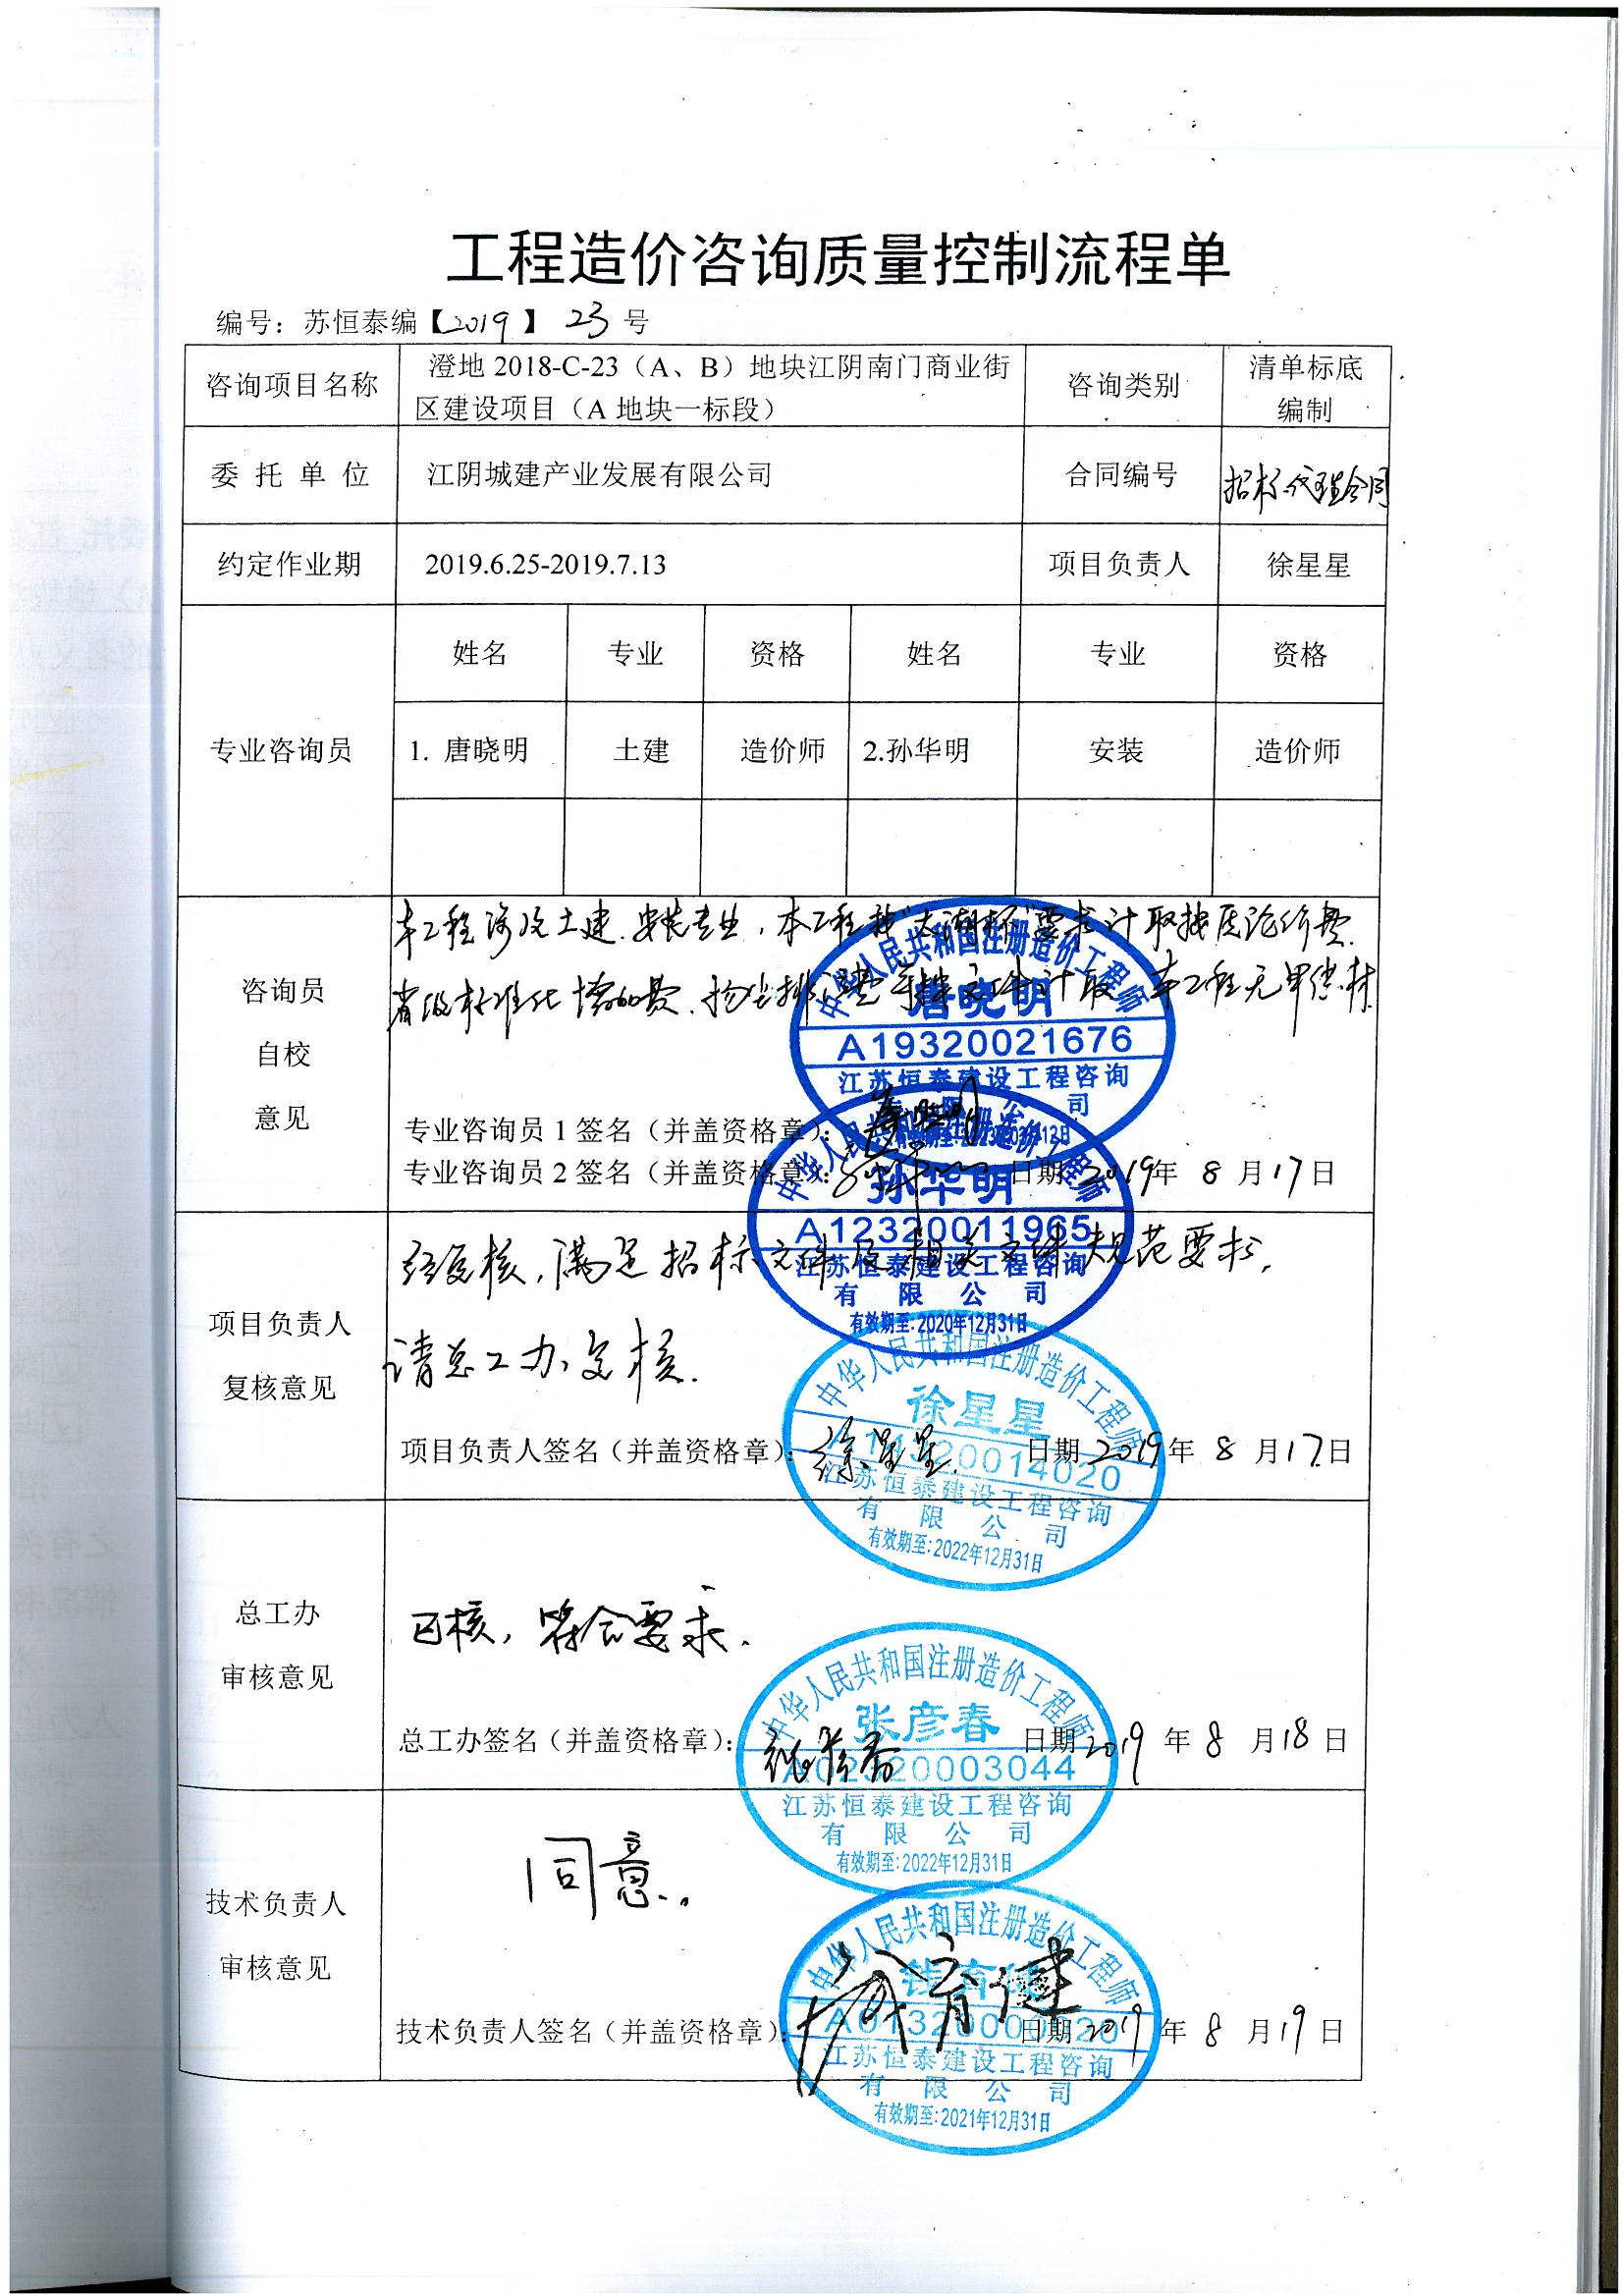 工程造价咨询质量控制流程单
编号：苏恒泰编【2019】 23 号
咨询项目名称 澄地 2018-C-23（A、B）地块江阴南门商业街区建设项目（A 地块一标段） 咨询类别 清单标底编制
委 托 单 位 江阴城建产业发展有限公司 合同编号 招标代理合同
约定作业期 2019.6.25-2019.7.13 项目负责人 徐星星
专业咨询员
姓名 专业 资格 姓名 专业 资格
1. 唐晓明 土建 造价师 2.孙华明 安装 造价师
咨询员
自校
意见
本工程涉及土建、安装专业，本工程按“太湖杯”要求计取按质论价费、
省级标准化增加费、扬尘排污费等按文件计取 本工程无甲供材
中华人民共和国注册造价工程师
唐晓明
A19320021676
江苏恒泰建设工程咨询
有 限 公 司
专业咨询员 1 签名（并盖资格章）：
专业咨询员 2 签名（并盖资格章）： 日期 2019年 8 月17日
中华人民共和国注册造价工程师
孙华明
A12320011965
江苏恒泰建设工程咨询
有 限 公 司
有效期至:2020年12月31日
项目负责人
复核意见
经复核，满足招标文件及相关文件规范要求，
请总工办复核.
项目负责人签名（并盖资格章）：徐星星 日期 2019年 8 月17日
中华人民共和国注册造价工程师
徐星星
江苏恒泰建设工程咨询
有 限 公 司
有效期至:2022年12月31日
总工办
审核意见
已核，符合要求.
总工办签名（并盖资格章）：张彦春 日期 2019 年 8 月18日
中华人民共和国注册造价工程师
张彦春
A02320003044
江苏恒泰建设工程咨询
有 限 公 司
有效期至:2022年12月31日
技术负责人
审核意见
同意.
技术负责人签名（并盖资格章）： 日期 2019 年 8 月19日
中华人民共和国注册造价工程师
江苏恒泰建设工程咨询
有 限 公 司
有效期至:2021年12月31日